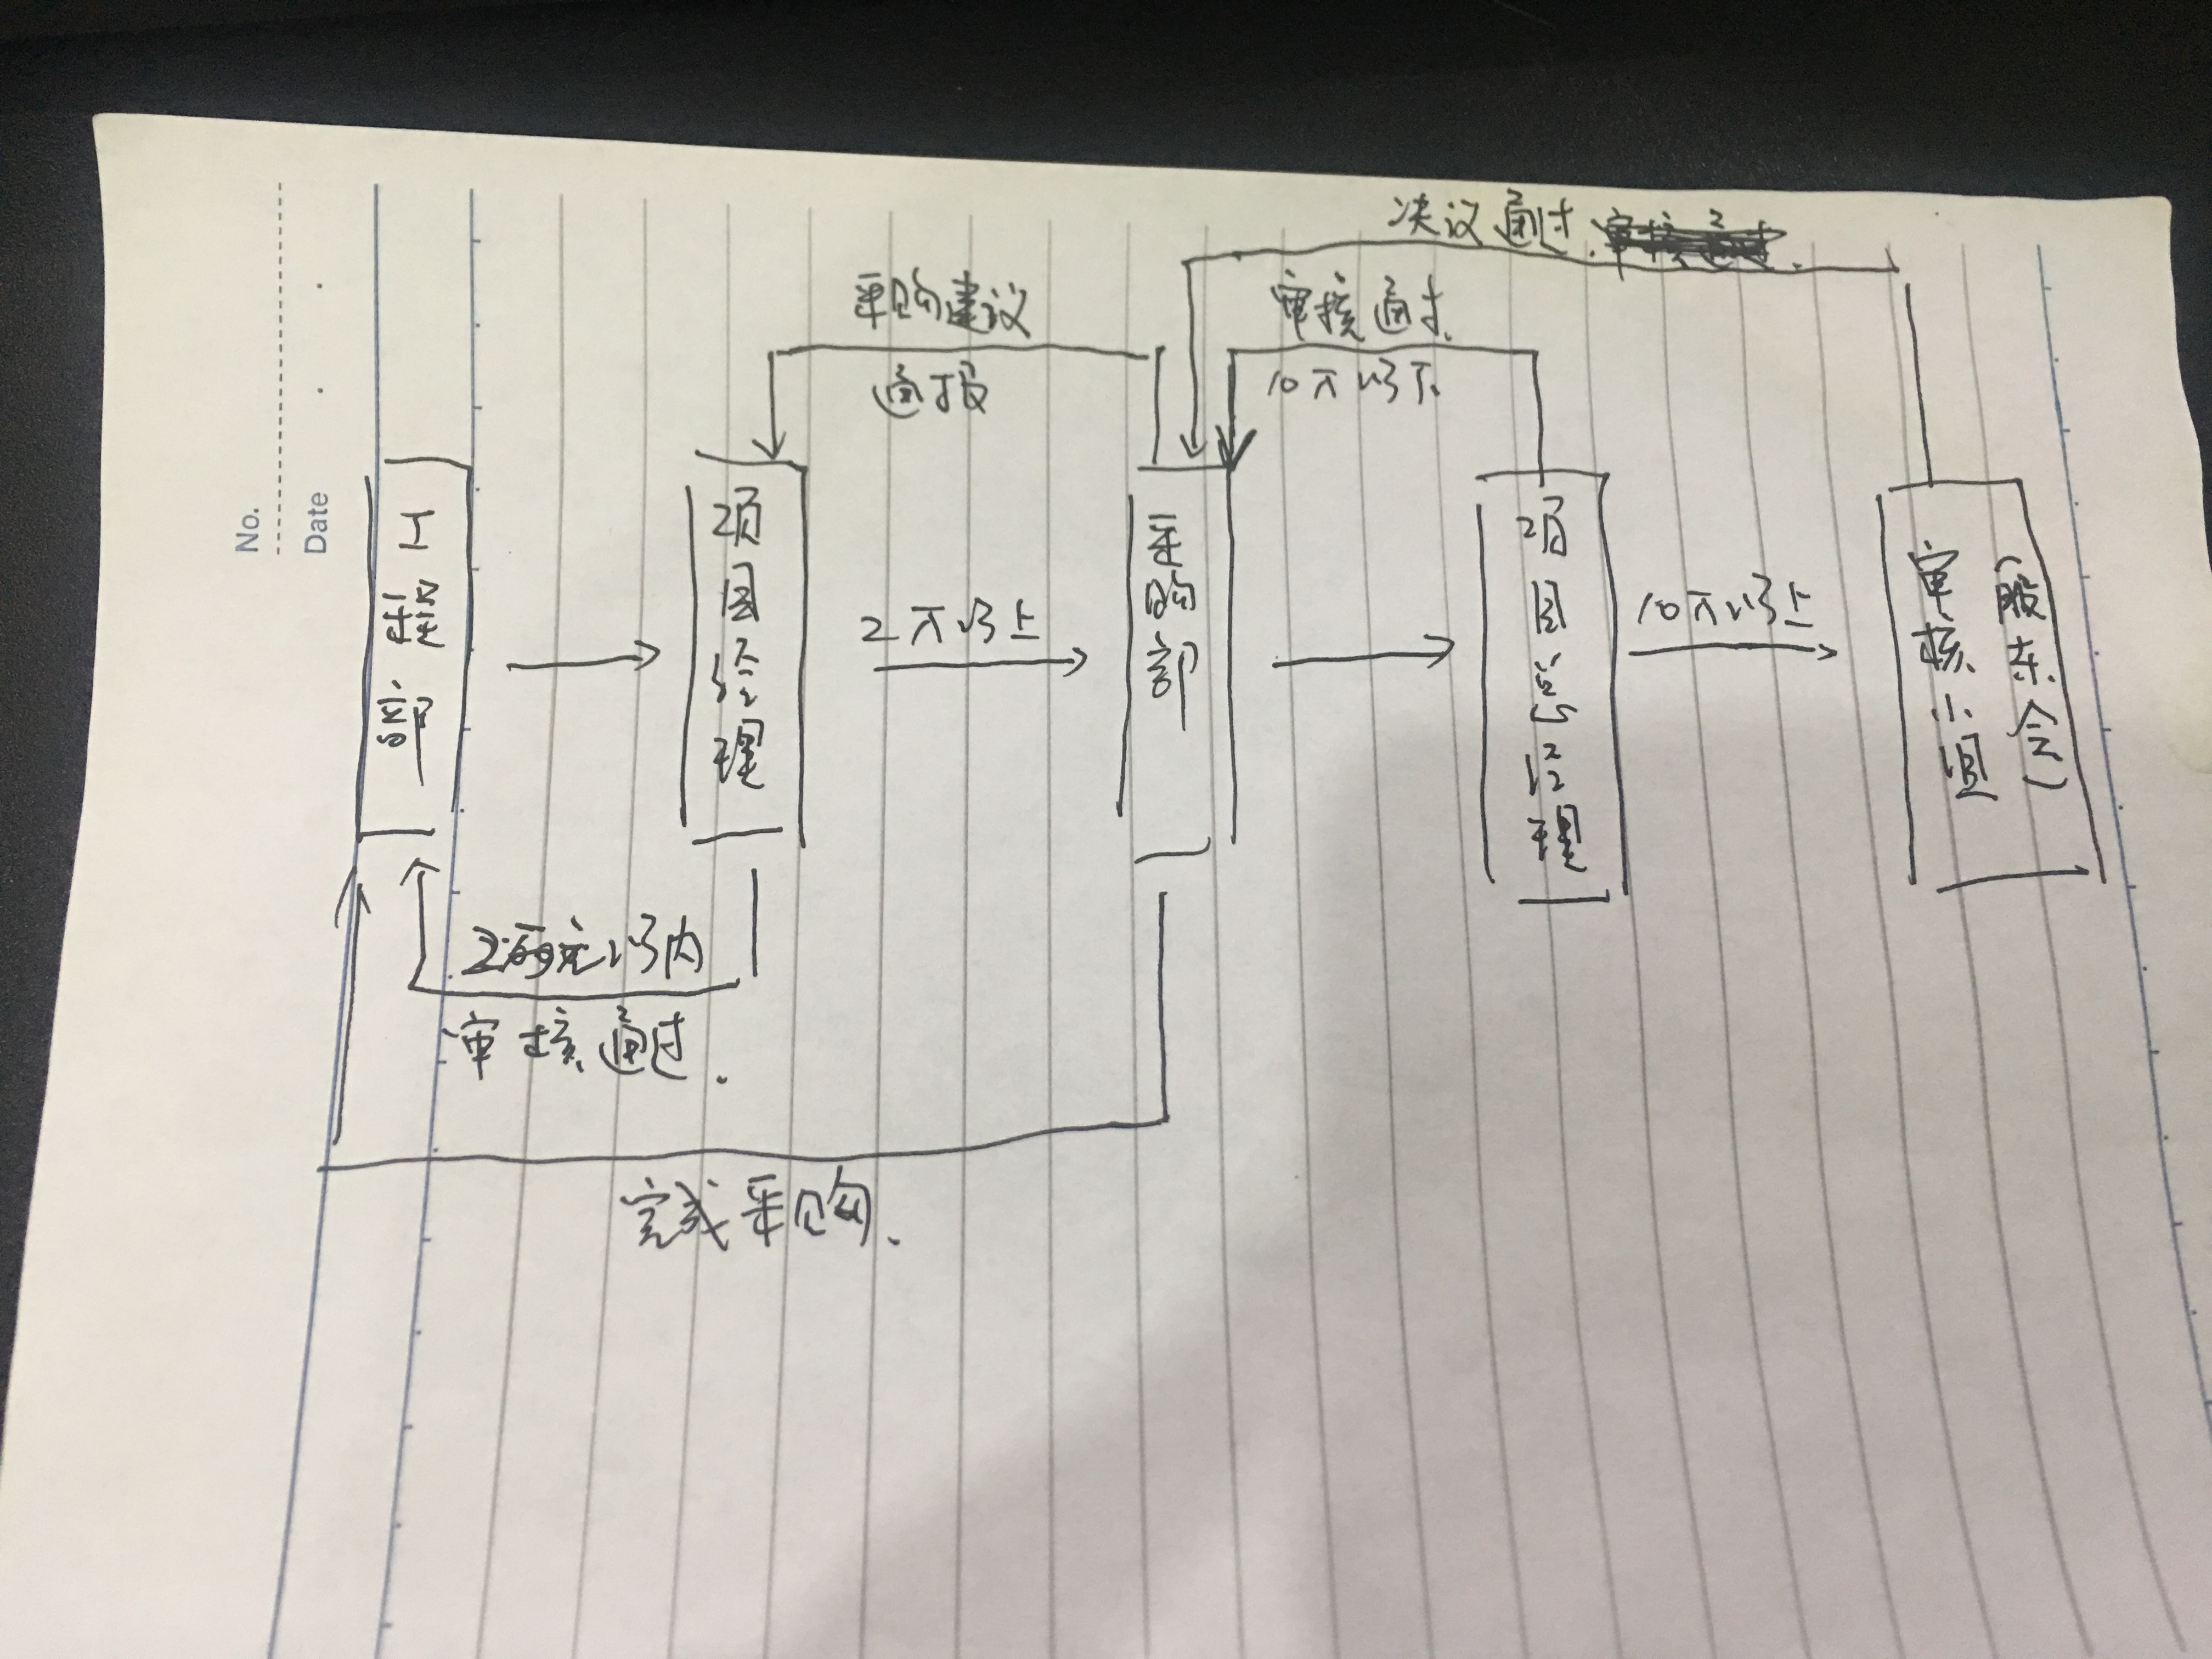 No.
Date
决议通过.
采购建议
通报
审核通过.
10万以下.
工程部
项目经理
2万以上
采购部
项目总经理
10万以上
审核小组
(股东会)
以内
审核通过.
完成采购.